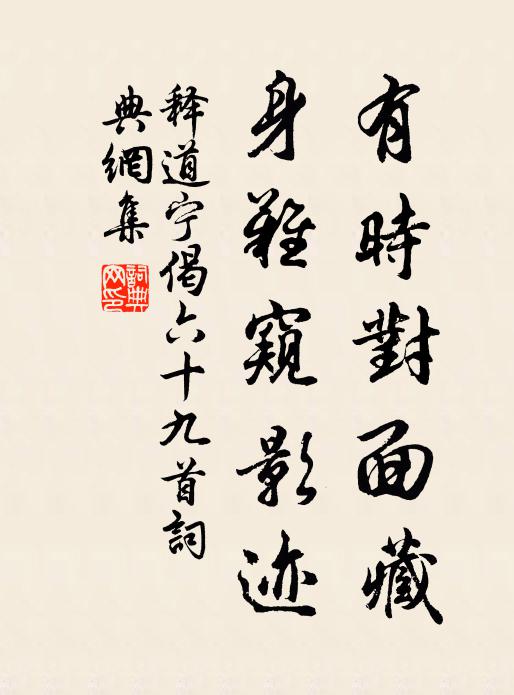 有時對面藏
身難窺影迹
釋道宁偈六十九首詞
典網集
詞典网印